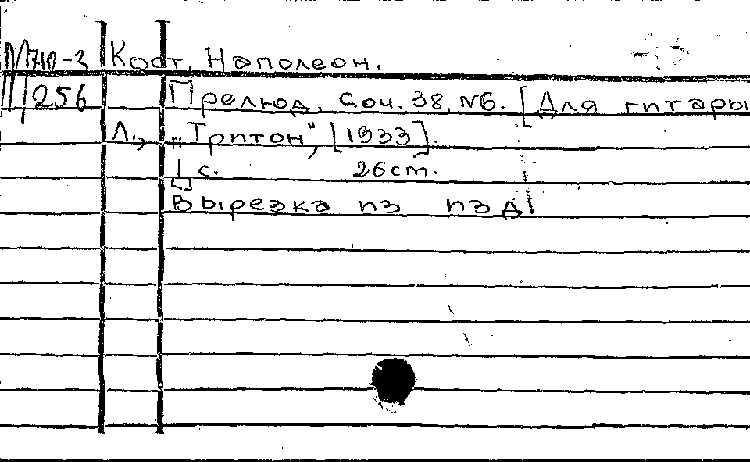 М710-3 Кост, Наполеон.
256 Прелюд. Соч. 38, №6. [Для гитары
Л., "Тритон", [1933].
1 с. 26 cm.
Вырезка из изд